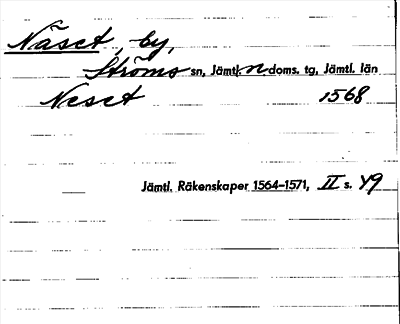 Näset, by,
Ströms sn, Jämtl. n doms. tg, Jämtl. län
Neset 1568
Jämtl. Räkenskaper 1564-1571, II s. 49